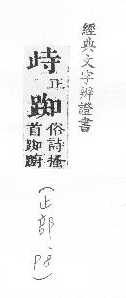 經典文字辨證書
歭正踟俗詩搔
首踟躕
(止部、P8)